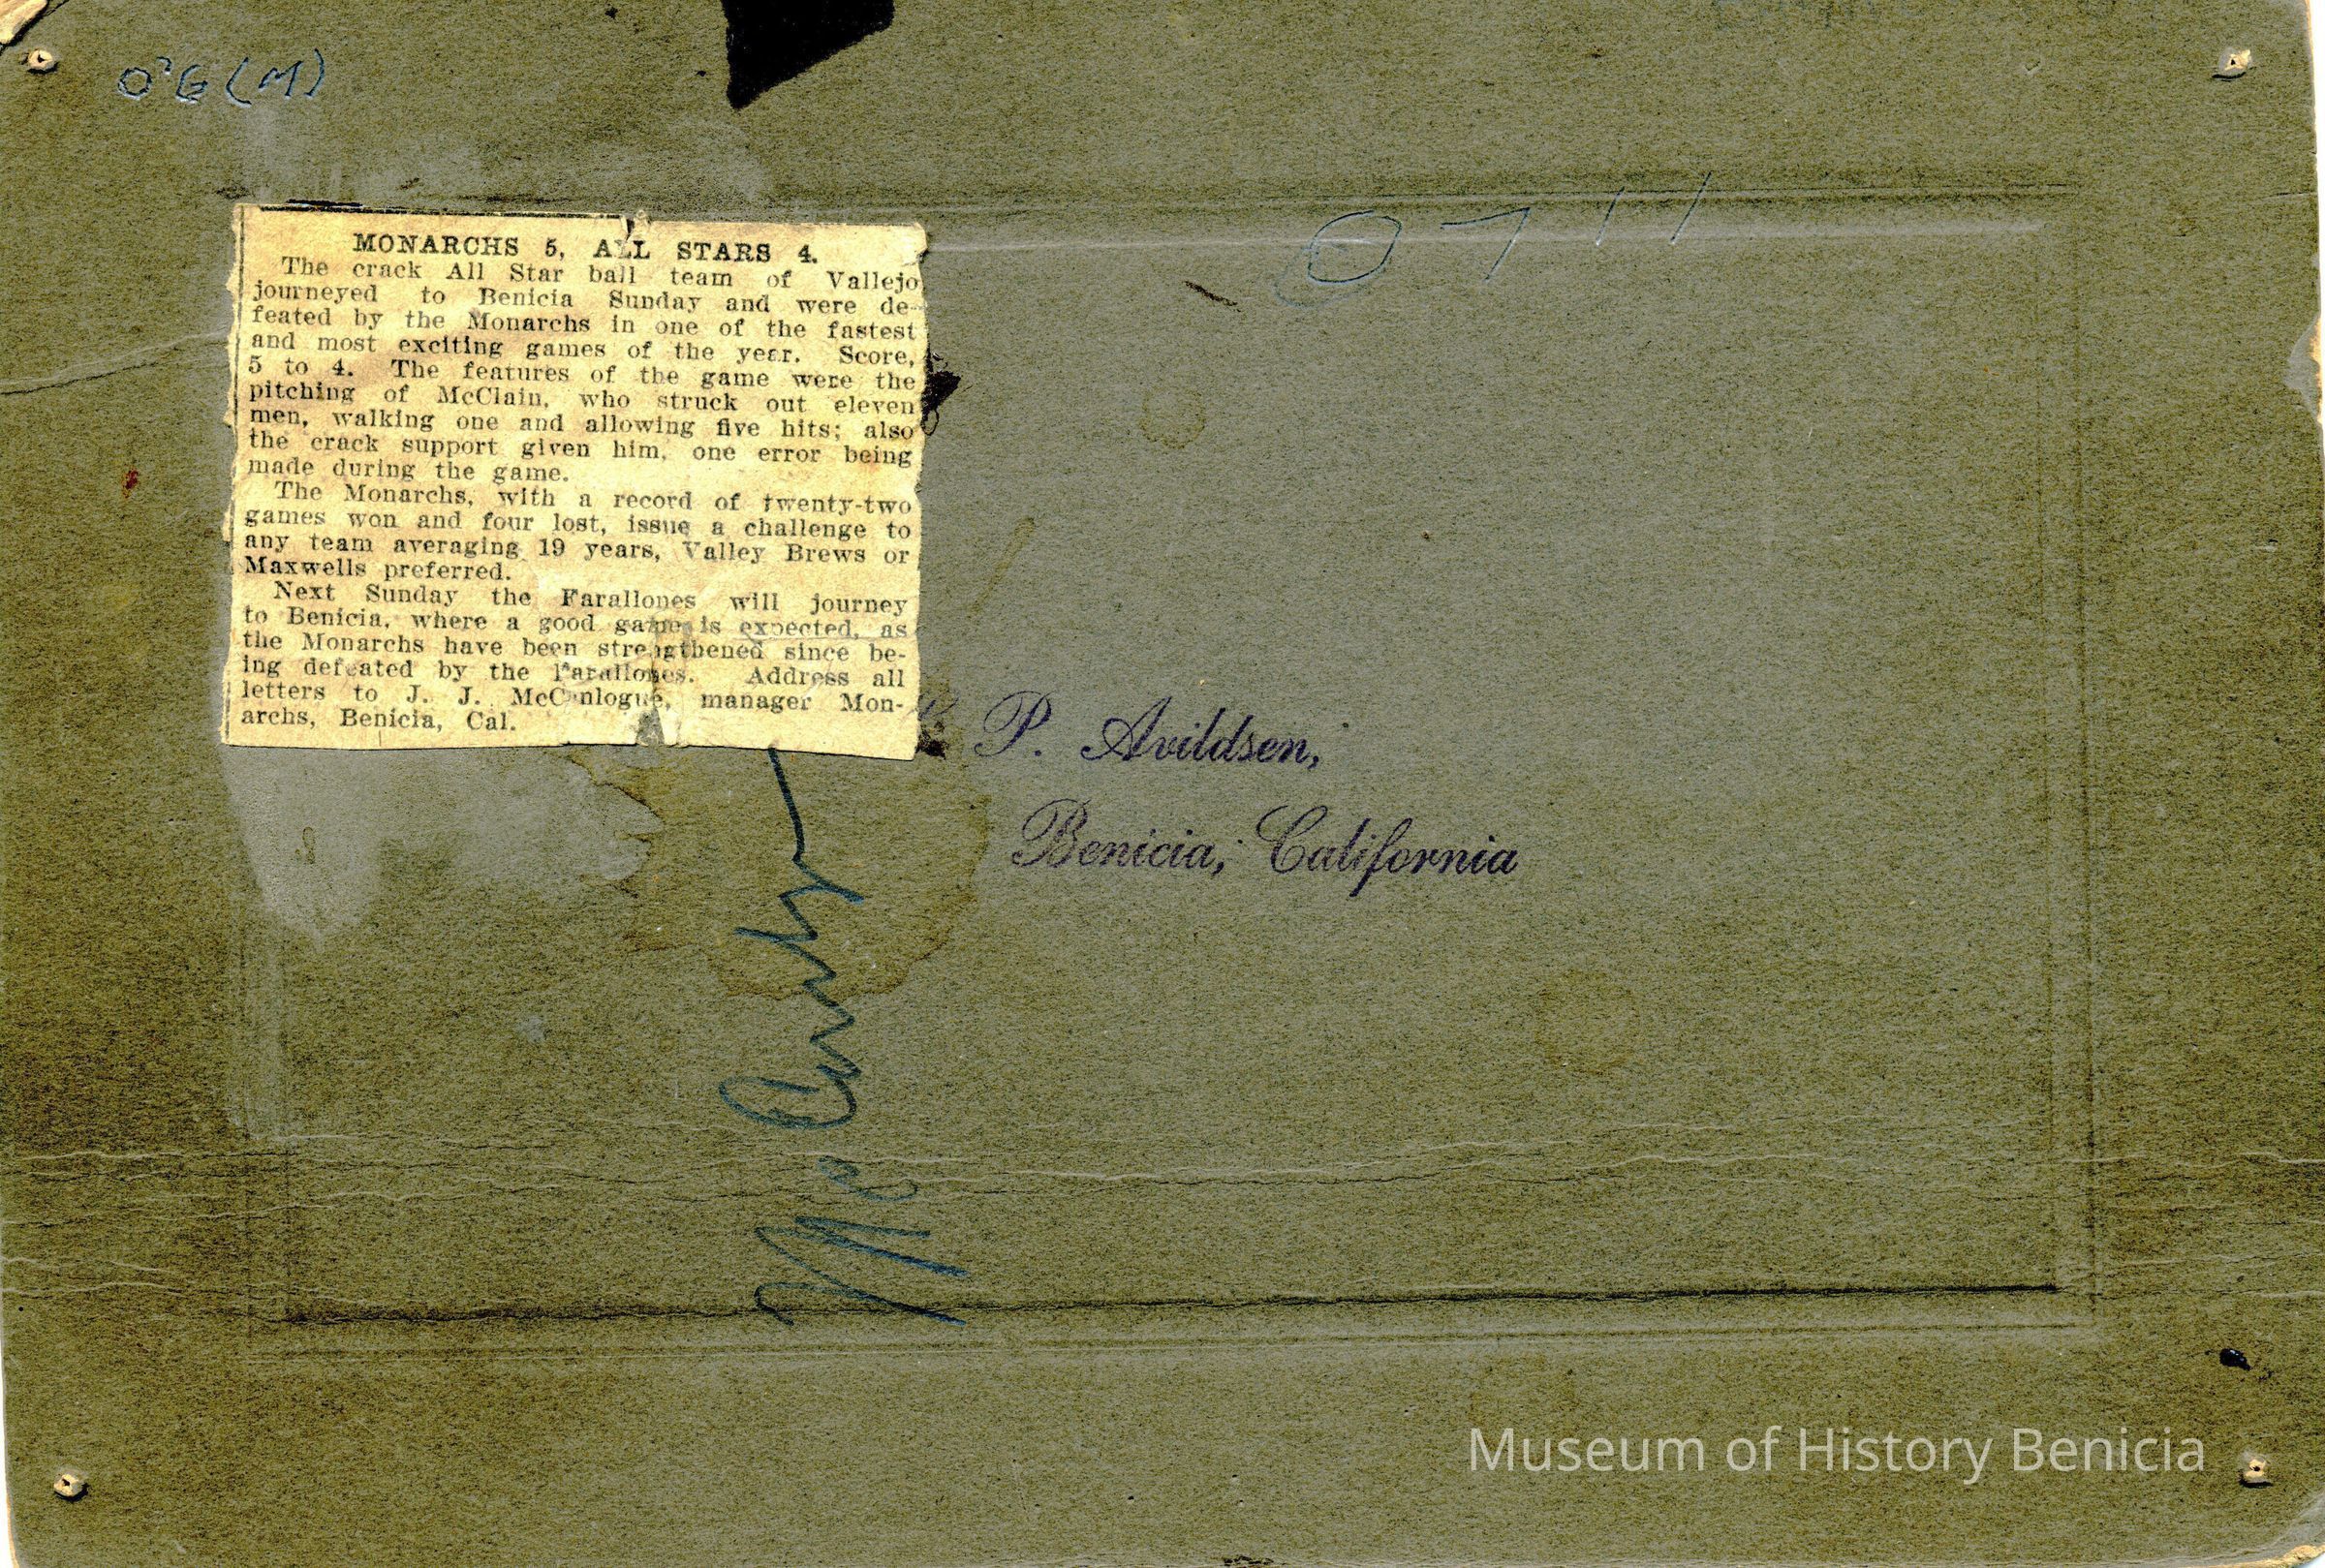 O'G (M)
MONARCHS 5, ALL STARS 4.
The crack All Star ball team of Vallejo
journeyed to Benicia Sunday and were de-
feated by the Monarchs in one of the fastest
and most exciting games of the year. Score,
5 to 4. The features of the game were the
pitching of McClain, who struck out eleven
men, walking one and allowing five hits; also
the crack support given him, one error being
made during the game.
The Monarchs, with a record of twenty-two
games won and four lost, issue a challenge to
any team averaging 19 years, Valley Brews or
Maxwells preferred.
Next Sunday the Farallones will journey
to Benicia, where a good game is expected, as
the Monarchs have been strengthened since be-
ing defeated by the Farallones. Address all
letters to J. J. manager Mon-
archs, Benicia, Cal.
P. Avildsen,
Benicia, California
Museum of History Benicia